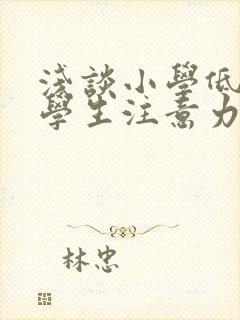 淺談小學低
學生注意力
林忠